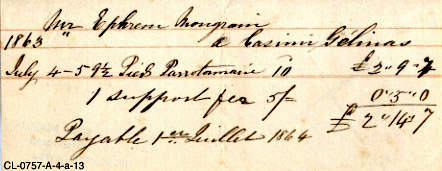 Mr Ephrem Mongrain
1863 " a Casimi Gélinas
July 4 - 5 9½ Pieds 10 £ 2 " 9 " 7
1 support fer 5/- 0 " 5 " 0
Payable 1er Juillet 1864 £ 2 " 14 " 7
CL-0757-A-4-a-13